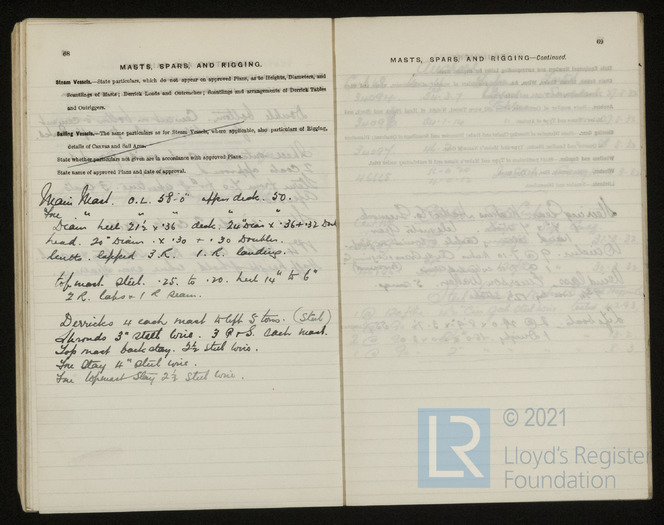 68
MASTS, SPARS, AND RIGGING.
Steam Vessels.—State particulars, which do not appear on approved Plans, as to Heights, Diameters, and
Scantlings of Masts; Derrick Loads and Outreaches; Scantlings and arrangements of Derrick Tables
and Outriggers.
Sailing Vessels.—The same particulars as for Steam Vessels, where applicable, also particulars of Rigging,
details of Canvas and Sail Area.
State whether particulars not given are in accordance with approved Plans.
State name of approved Plans and date of approval.
Main Mast. O.L. 58-0" upper deck. 50.
Fore " " " " "
Diam heel 21½ x .36" deck. 24" Diam x .36 + .32 Doub
head. 20" Diam. x .30 + .30 Doubler.
butts lapped 3 R. 1 R. landing.
topmast steel. .25 to .20. heel 14" to 6"
2 R. laps & 1 R seam.
Derricks 4 each mast to lift 5 tons. (Steel)
Shrouds 3" steel wire. 3 P & S. each mast.
Top mast backstay. 2½ steel wire.
Fore Stay 4" steel wire.
Fore topmast Stay 2½ Steel wire.
69
MASTS, SPARS, AND RIGGING—Continued.
© 2021
LR
Lloyd's Register
Foundation